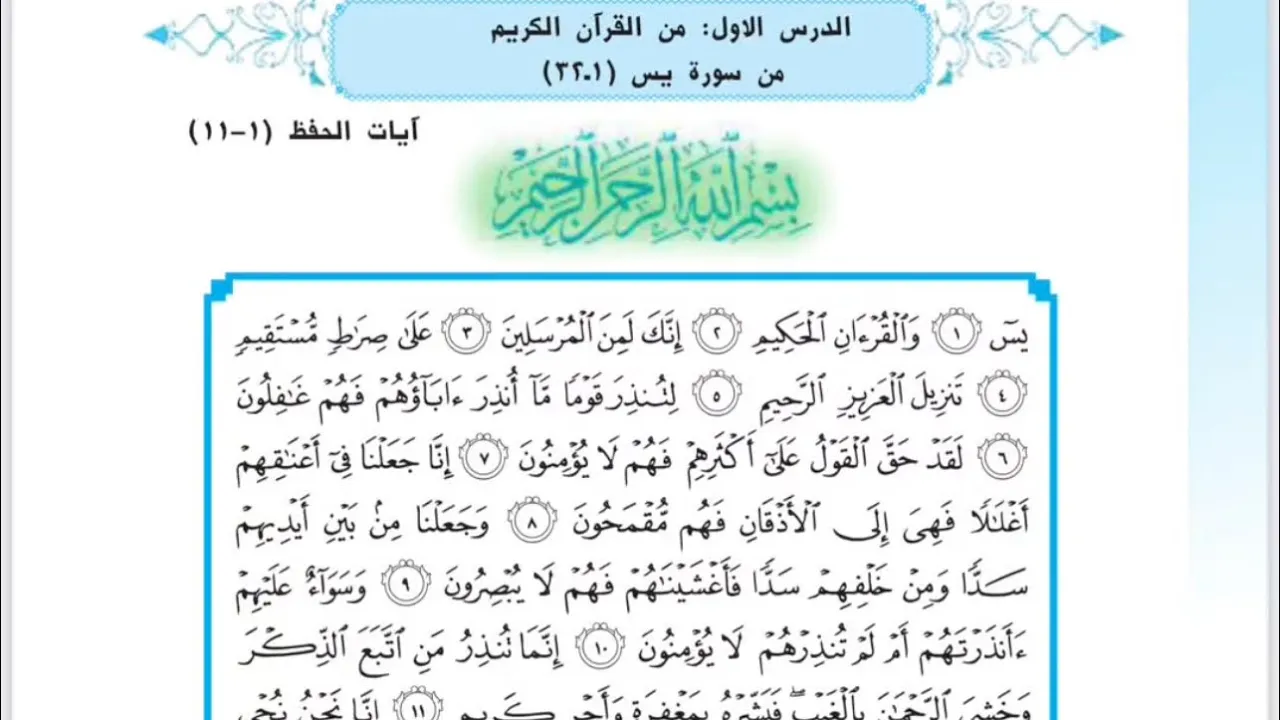 الدرس الاول: من القرآن الكريم
من سورة يس (١ـ٣٢)
آيات الحفظ (١-١١)
بِسْمِ اللَّهِ الرَّحْمَٰنِ الرَّحِيمِ
يسٓ ١ وَالْقُرْءَانِ الْحَكِيمِ ٢ إِنَّكَ لَمِنَ الْمُرْسَلِينَ ٣ عَلَىٰ صِرَٰطٍ مُّسْتَقِيمٍ
٤ تَنزِيلَ الْعَزِيزِ الرَّحِيمِ ٥ لِتُنذِرَ قَوْمًا مَّآ أُنذِرَ ءَابَآؤُهُمْ فَهُمْ غَٰفِلُونَ
٦ لَقَدْ حَقَّ الْقَوْلُ عَلَىٰٓ أَكْثَرِهِمْ فَهُمْ لَا يُؤْمِنُونَ ٧ إِنَّا جَعَلْنَا فِىٓ أَعْنَٰقِهِمْ
أَغْلَٰلًا فَهِىَ إِلَى الْأَذْقَانِ فَهُم مُّقْمَحُونَ ٨ وَجَعَلْنَا مِنۢ بَيْنِ أَيْدِيهِمْ
سَدًّا وَمِنْ خَلْفِهِمْ سَدًّا فَأَغْشَيْنَٰهُمْ فَهُمْ لَا يُبْصِرُونَ ٩ وَسَوَآءٌ عَلَيْهِمْ
ءَأَنذَرْتَهُمْ أَمْ لَمْ تُنذِرْهُمْ لَا يُؤْمِنُونَ ١٠ إِنَّمَا تُنذِرُ مَنِ اتَّبَعَ الذِّكْرَ
وَخَشِىَ الرَّحْمَٰنَ بِالْغَيْبِ ۖ فَبَشِّرْهُ بِمَغْفِرَةٍ وَأَجْرٍ كَرِيمٍ ١١ إِنَّا نَحْنُ نُحْىِ